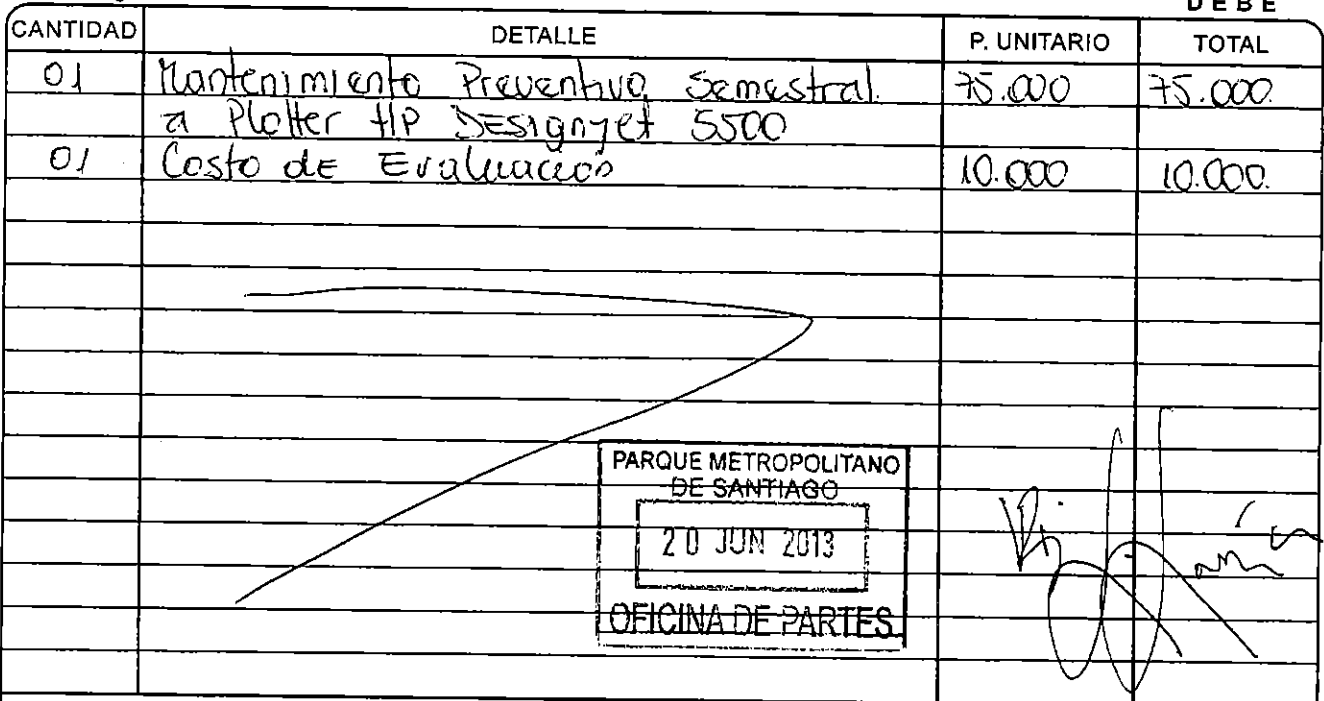 DEBE
CANTIDAD DETALLE P. UNITARIO TOTAL
01 Mantenimiento Preventivo Semestral. 75.000 75.000.
a Plotter HP DESIGNjet 5500
01 Costo de Evaluación 10.000 10.000.
PARQUE METROPOLITANO
DE SANTIAGO
20 JUN 2013
OFICINA DE PARTES